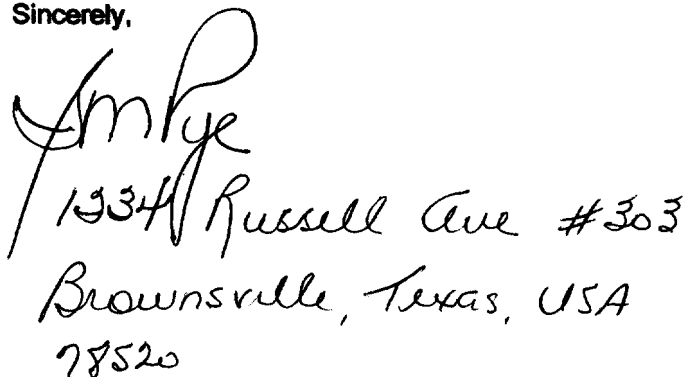 Sincerely,
JM Pye
1334 Russell Ave #303
Brownsville, Texas, USA
78520